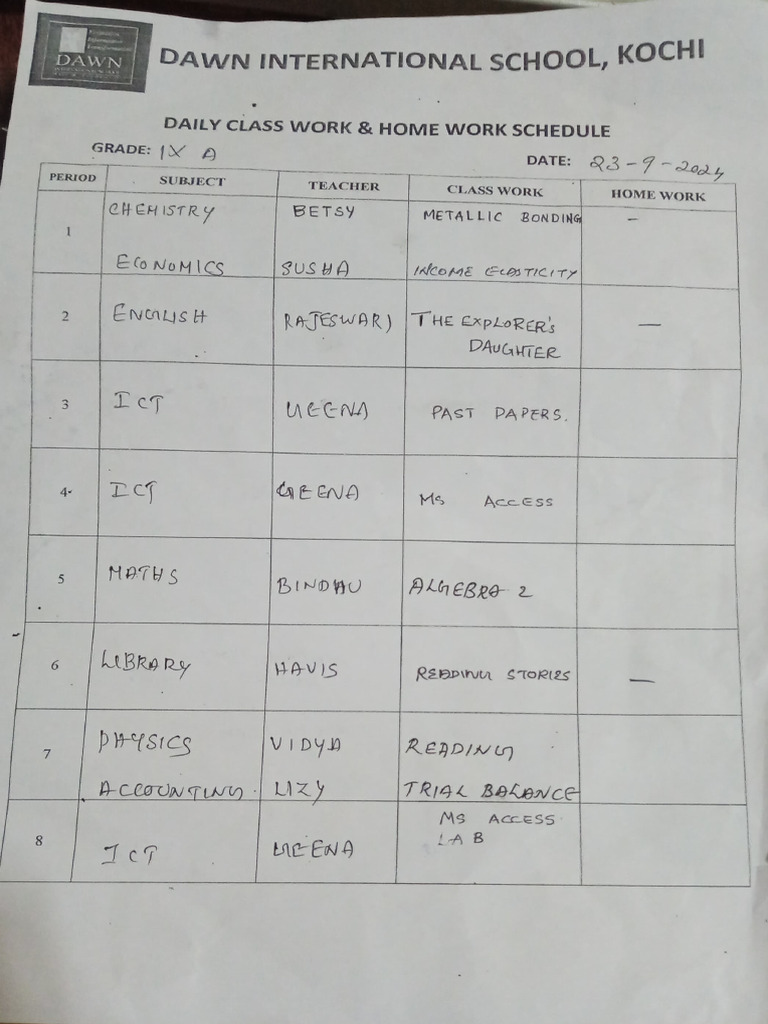 DAWN
DAWN INTERNATIONAL SCHOOL, KOCHI
DAILY CLASS WORK & HOME WORK SCHEDULE
GRADE: IX A
DATE: 23-9-2024
PERIOD SUBJECT TEACHER CLASS WORK HOME WORK
1 CHEMISTRY BETSY METALLIC BONDING –
ECONOMICS SUSHA INCOME ELASTICITY
2 ENGLISH RAJESWARI THE EXPLORER'S —
DAUGHTER
3 ICT GEENA PAST PAPERS.
4 ICT GEENA MS ACCESS
5 MATHS BINDHU ALGEBRA 2
6 LIBRARY HAVIS READING STORIES —
7 PHYSICS VIDYA READING
ACCOUNTING. LIZY TRIAL BALANCE
8 ICT GEENA MS ACCESS
LAB